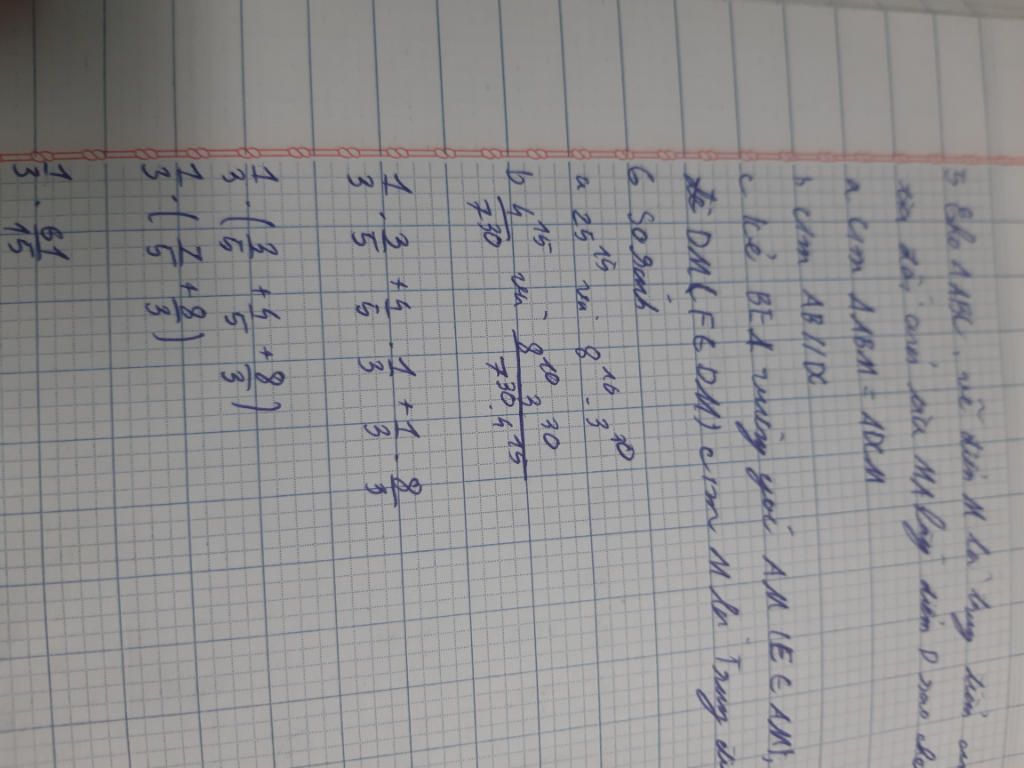 Cho ΔABC. vẽ điểm M là trung điểm
lấy điểm D sao
a cm ΔABM = ΔDCM
b cm AB // DC
c kẻ BE ⊥ AM (E ∈ AM),
DM (F ∈ DM) cm M là Trung
6 So sánh
a 25^15 và 8^10 . 3^30
b 4^15/7^30 và 8^10 3^30/7^30 . 4^15
1/3 . 3/5 + 4/5 . 1/3 + 1/3 . 8/3
1/3 . (3/5 + 4/5 + 8/3)
1/3 . (7/5 + 8/3)
1/3 . 61/15